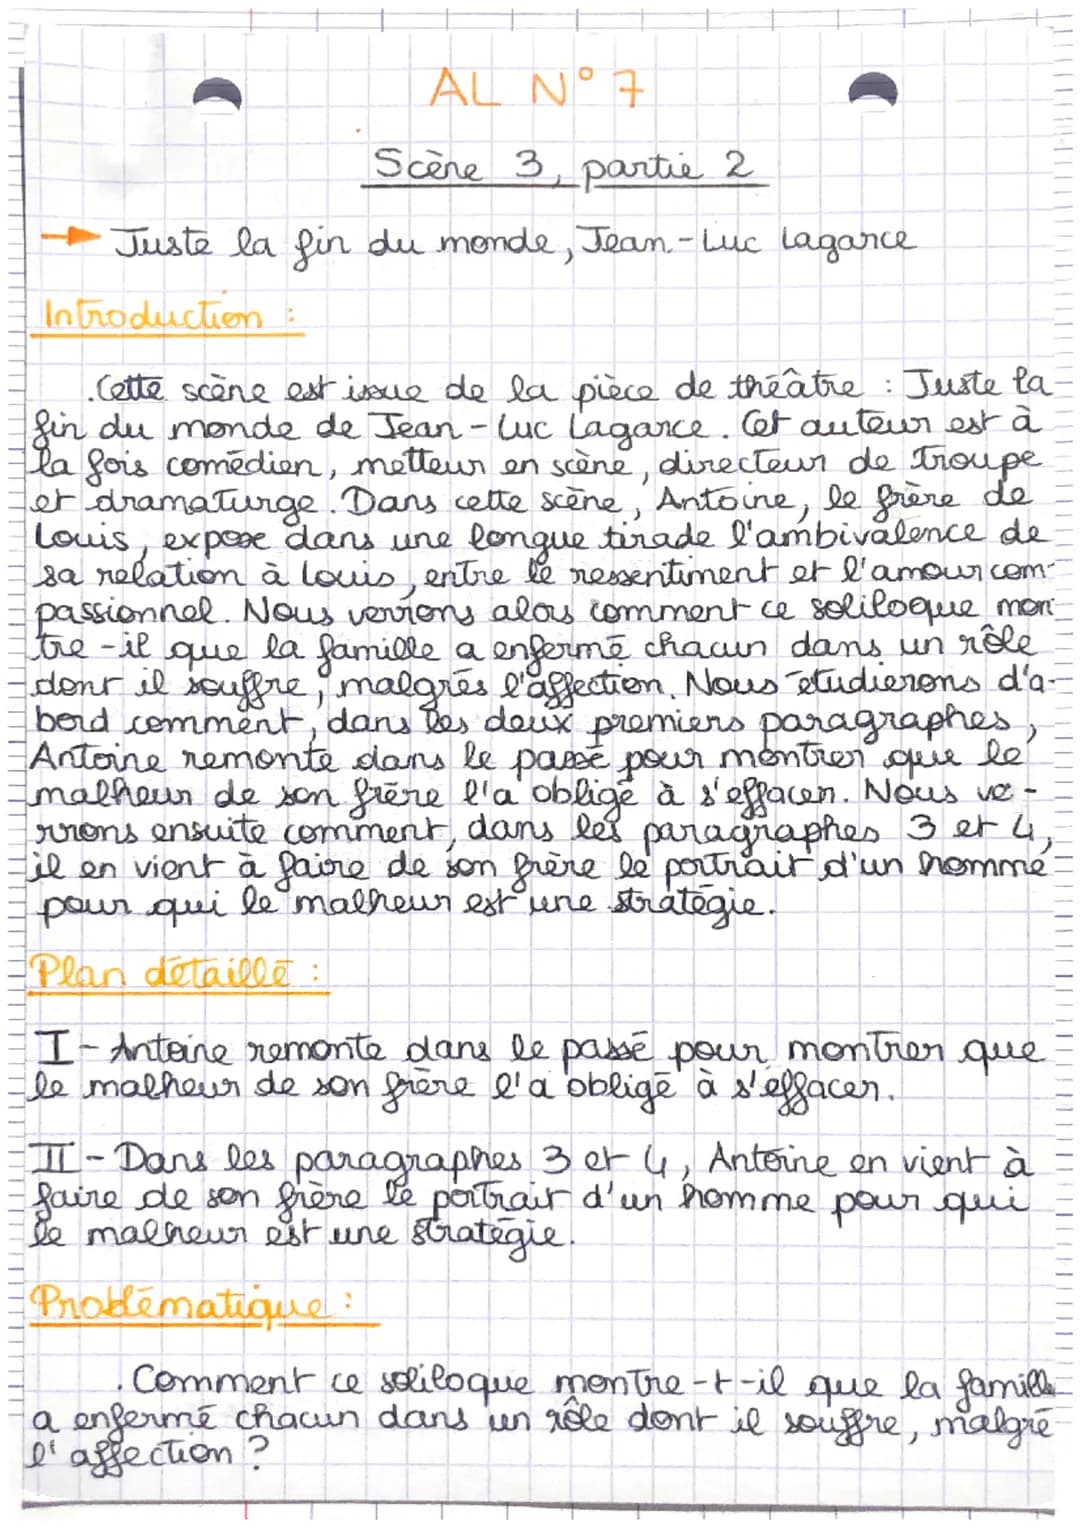 AL N° 7
Scène 3, partie 2
→ Juste la fin du monde, Jean-Luc Lagarce
Introduction :
.Cette scène est issue de la pièce de théâtre : Juste la
fin du monde de Jean-Luc Lagarce. Cet auteur est à
la fois comédien, metteur en scène, directeur de troupe
et dramaturge. Dans cette scène, Antoine, le frère de
Louis, expose dans une longue tirade l'ambivalence de
sa relation à Louis, entre le ressentiment et l'amour com-
passionnel. Nous verrons alors comment ce soliloque mon-
tre-il que la famille a enfermé chacun dans un rôle
dont il souffre, malgrés l'affection. Nous étudierons d'a-
bord comment, dans les deux premiers paragraphes,
Antoine remonte dans le passé pour montrer que le
malheur de son frère l'a obligé à s'effacer. Nous ve-
rrons ensuite comment, dans les paragraphes 3 et 4,
il en vient à faire de son frère le portrait d'un homme
pour qui le malheur est une stratégie.
Plan détaillé :
I - Antoine remonte dans le passé pour montrer que
le malheur de son frère l'a obligé à s'effacer.
II - Dans les paragraphes 3 et 4, Antoine en vient à
faire de son frère le portrait d'un homme pour qui
le malheur est une stratégie.
Problématique :
.Comment ce soliloque montre-t-il que la famille
a enfermé chacun dans un rôle dont il souffre, malgré
l'affection ?